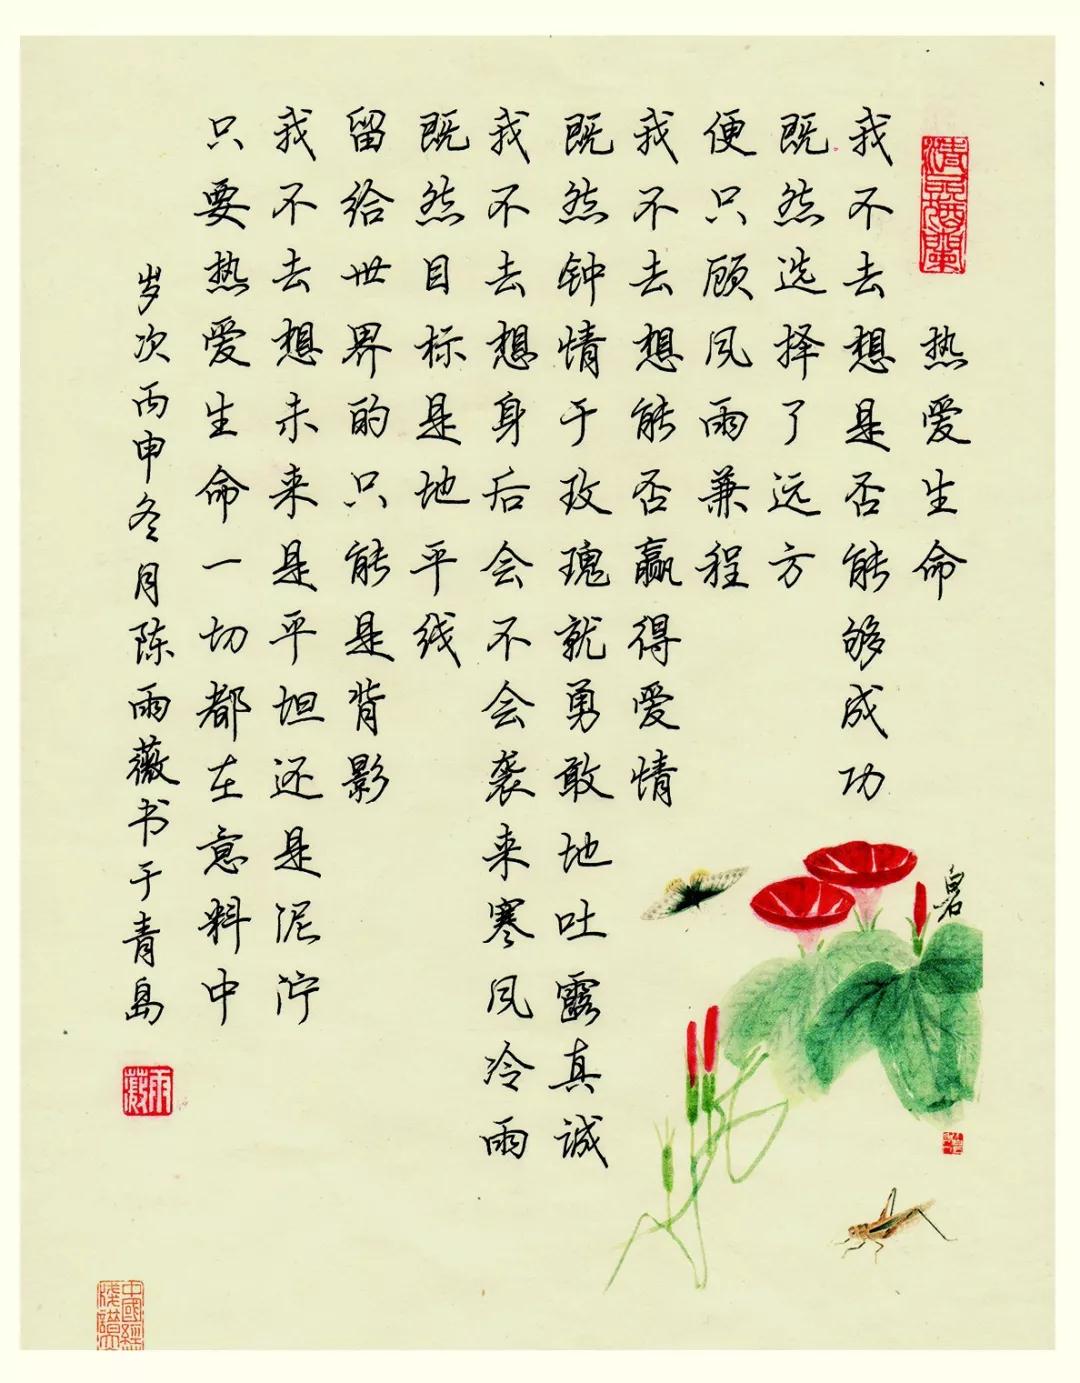 热爱生命
我不去想是否能够成功
既然选择了远方
便只顾风雨兼程
我不去想能否赢得爱情
既然钟情于玫瑰就勇敢地吐露真诚
我不去想身后会不会袭来寒风冷雨
既然目标是地平线
留给世界的只能是背影
我不去想未来是平坦还是泥泞
只要热爱生命一切都在意料中
岁次丙申冬月陈雨薇书于青岛
雨薇
白石
中國經